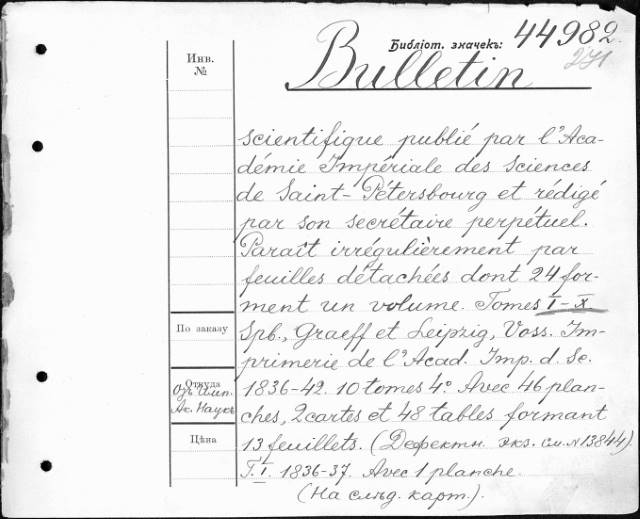 Библіот. значекъ: 44982.
271
Инв.
№
Bulletin
scientifique publié par l'Aca-
démie Impériale des Sciences
de Saint-Pétersbourg et rédigé
par son secrétaire perpétuel.
Paraît irrégulièrement par
feuilles détachées dont 24 for-
ment un volume. Tomes I-X
Spb., Graeff et Leipzig, Voss. Im-
primerie de l'Acad. Imp. d. Sc.
1836-42. 10 tomes 4° Avec 46 plan-
ches, 2 cartes et 48 tables formant
13 feuillets. (Дефектн. экз. см. № 13844).
T. I. 1836-37. Avec 1 planche.
(На слѣд. карт.).
По заказу
Откуда
Отъ Имп.
Ак. Наукъ
Цѣна